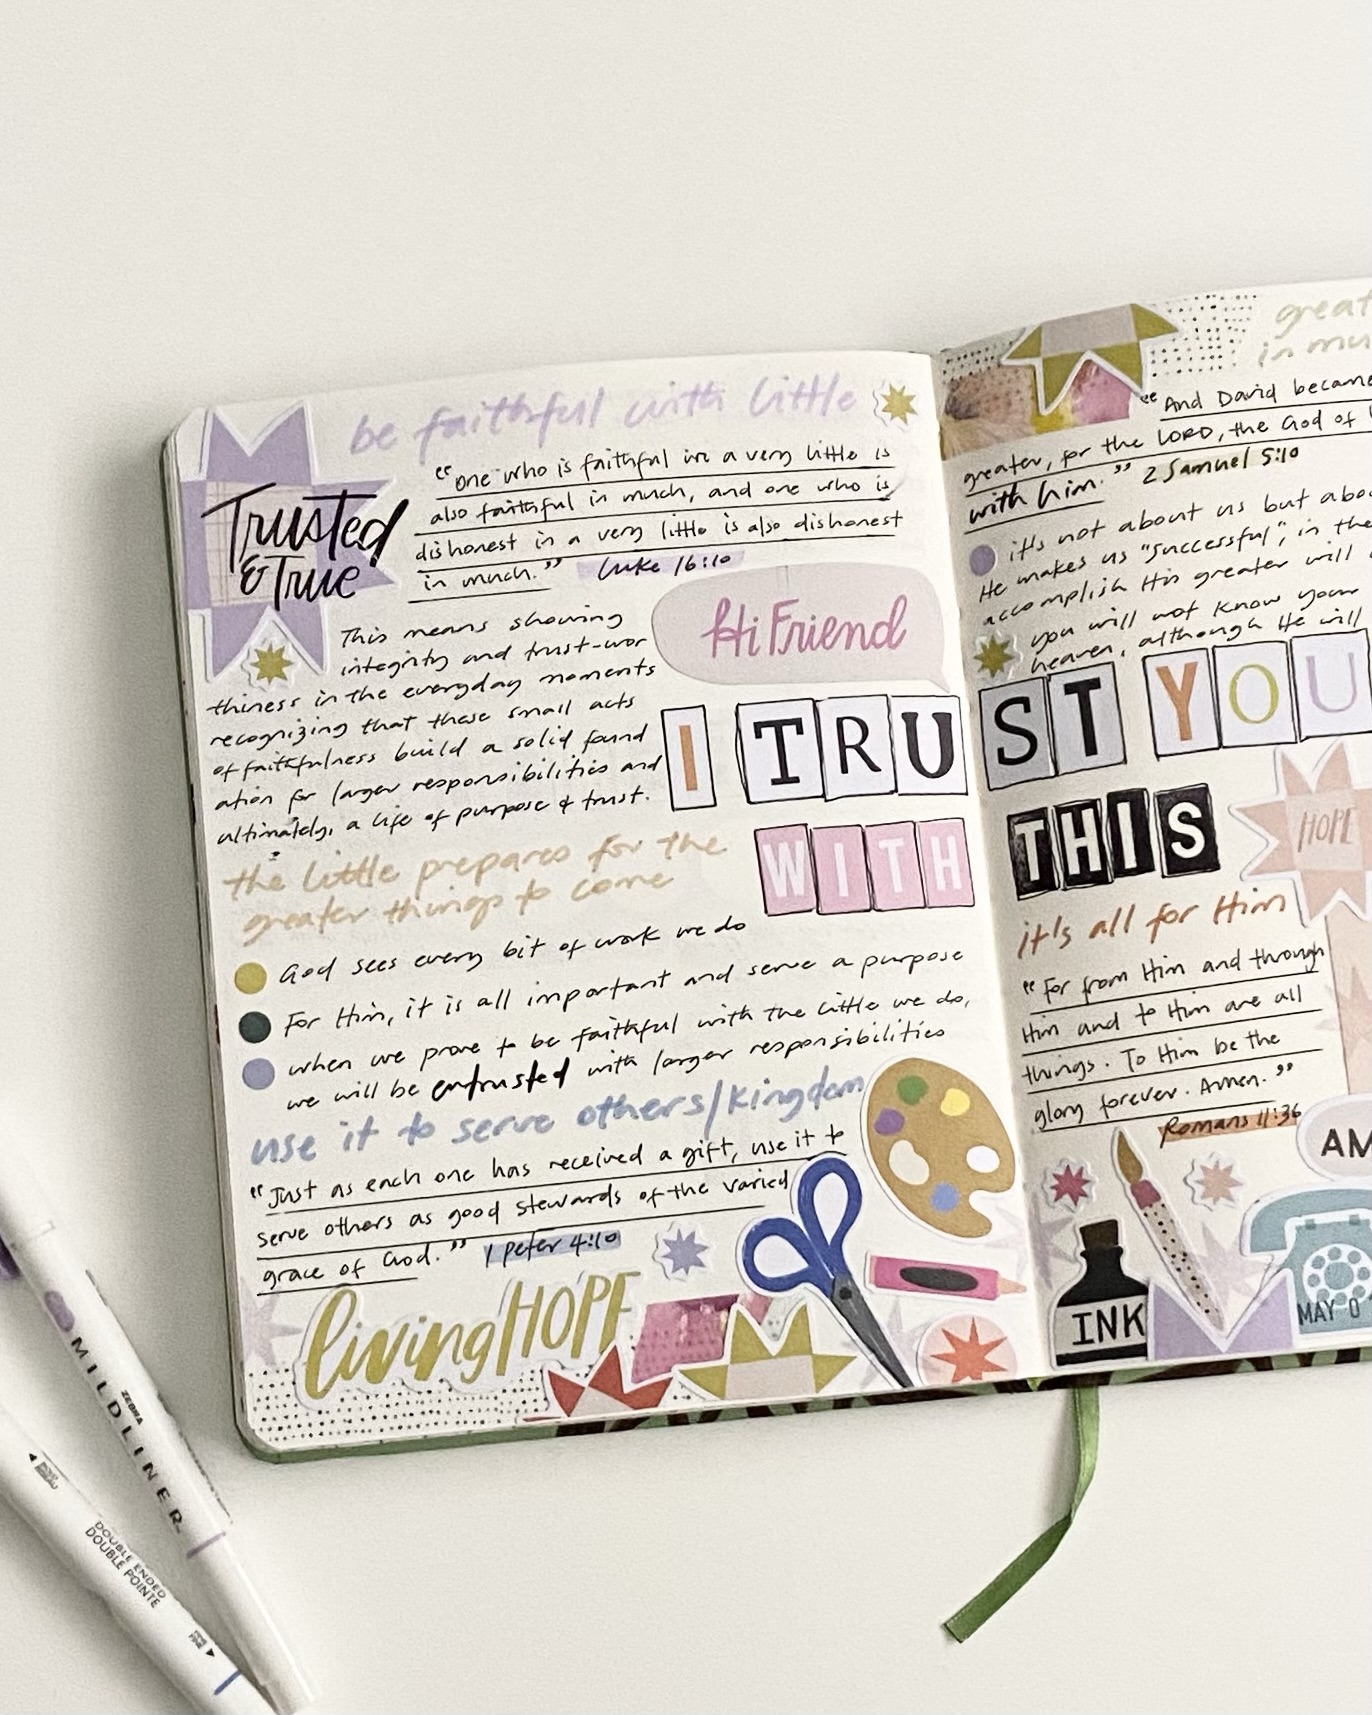 be faithful with little
"one who is faithful in a very little is
also faithful in much, and one who is
dishonest in a very little is also dishonest
in much." Luke 16:10
Trusted
& True
Hi Friend
This means showing
integrity and trust-wor
thiness in the everyday moments
recognizing that these small acts
of faithfulness build a solid found
ation for larger responsibilities and
ultimately, a life of purpose & trust.
I TRU
WITH
the little prepares for the
greater things to come
God sees every bit of work we do
For Him, it is all important and serve a purpose
when we prove to be faithful with the little we do,
we will be entrusted with larger responsibilities
use it to serve others/kingdom
"Just as each one has received a gift, use it to
serve others as good stewards of the varied
grace of God." 1 Peter 4:10
living HOPE
great
in mu
"And David became
greater, for the LORD, the God of
with him." 2 Samuel 5:10
it's not about us but abo
He makes us "successful", in the
accomplish His greater will
you will not know your
heaven, although He will
ST YOU
THIS
HOPE
it's all for Him
"For from Him and through
Him and to Him are all
things. To Him be the
glory forever. Amen."
Romans 11:36
AM
INK
MAY 0
ZEBRA
MILDLINER
DOUBLE ENDED
DOUBLE POINTE